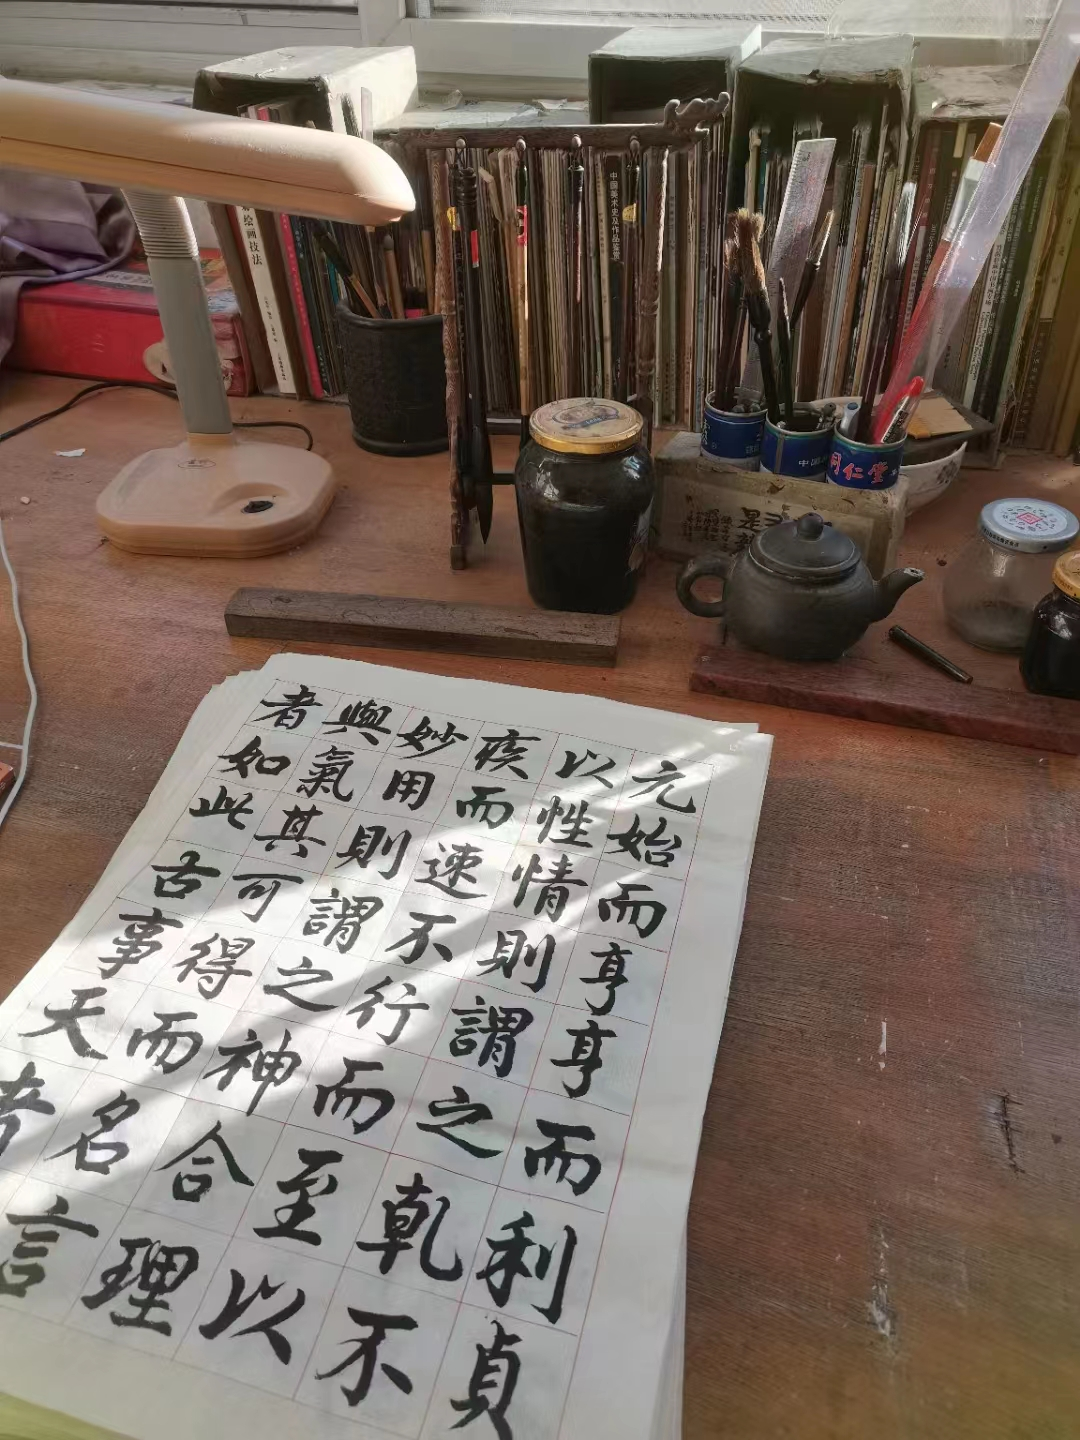 元始而亨亨而利貞
以性情則謂之乾不
疾而速不行而至以
妙用則謂之神合理
與氣其可得而名言
者如此古事天者
绘画技法
中国美术史及作品鉴赏
中国
同仁堂
是